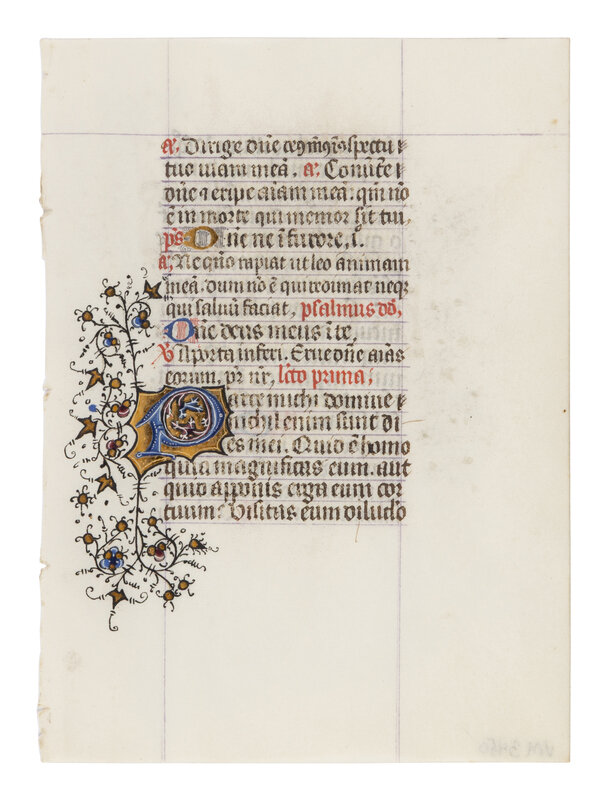 a. Dirige dñe ... cõspectu
tuo uiam meã. a. Conũte
dñe ⁊ eripe aĩam meã. qm̃ nõ
ẽ in morte qui memor sit tui.
ps Dñe ne ĩ furore, i.
a. Ne quõ rapiat ut leo animam
meã. dum nõ ẽ qui redimat neqꝫ
qui saluũ faciat, psalmus dd,
Dñe deus meus ĩ te,
℣ porta inferi. Erue dñe aĩas
eorum, pr̃ nr̃, lc̃to prima;
Parce michi domine
nichil enim sunt di
es mei. Quid ẽ homo
quia magnificas eum. aut
quid apponis erga eum cor
tuum? Visitas eum diludo
VM 3450